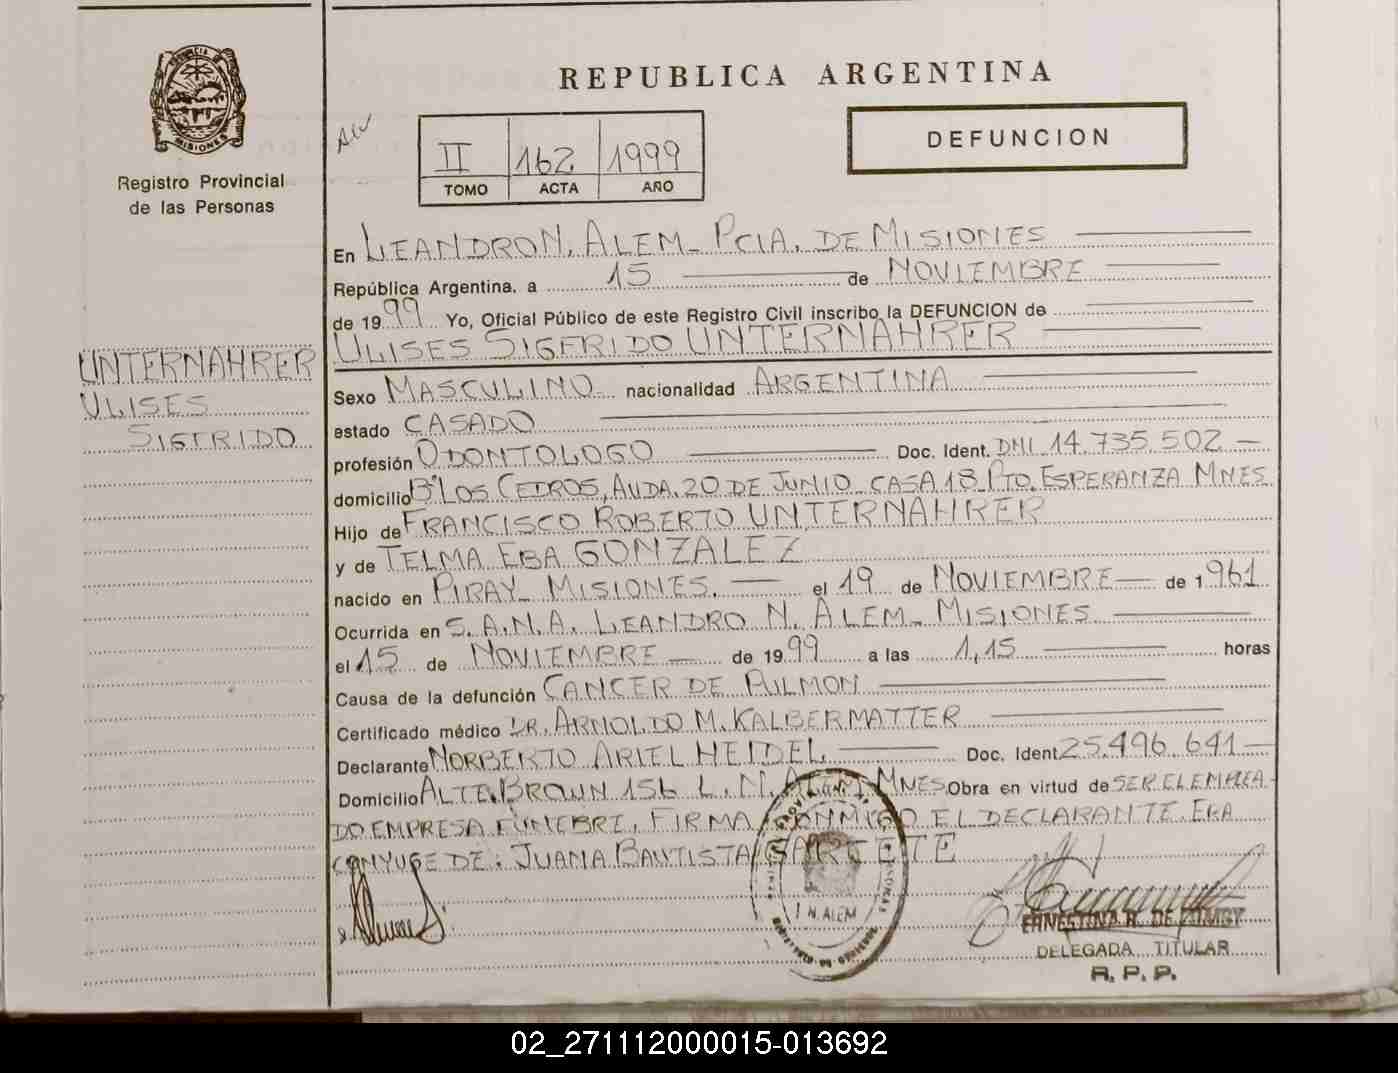 REPUBLICA ARGENTINA
PROVINCIA D MISIONES
Registro Provincial
de las Personas
II 162 1999
TOMO ACTA AÑO
DEFUNCION
En LEANDRO N. ALEM - PCIA. DE MISIONES
República Argentina, a 15 de NOVIEMBRE
de 1999 Yo, Oficial Público de este Registro Civil inscribo la DEFUNCION de
ULISES SIGFRIDO UNTERNAHRER
UNTERNAHRER
ULISES
SIGFRIDO
Sexo MASCULINO nacionalidad ARGENTINA
estado CASADO
profesión ODONTOLOGO Doc. Ident. DNI 14.735.502
domicilio Bº LOS CEDROS, AVDA. 20 DE JUNIO - CASA 18 - PTO. ESPERANZA MNES.
Hijo de FRANCISCO ROBERTO UNTERNAHRER
y de TELMA EBA GONZALEZ
nacido en PIRAY - MISIONES. el 19 de NOVIEMBRE de 1961
Ocurrida en S.A.N.A. LEANDRO N. ALEM - MISIONES
el 15 de NOVIEMBRE de 1999 a las 1,15 horas
Causa de la defunción CANCER DE PULMON
Certificado médico DR. ARNOLDO M. KALBERMATTER
Declarante NORBERTO ARIEL HEIDEL Doc. Ident 25.496.641
Domicilio ALTE. BROWN 156 L. N. ALEM, MNES. Obra en virtud de SER EL EMPLEA-
DO EMPRESA FUNEBRE. FIRMA CONMIGO EL DECLARANTE. ERA
CONYUGE DE: JUANA BAUTISTA
N. ALEM
ERNESTINA R. DE
DELEGADA TITULAR
R. P. P.
02_271112000015-013692